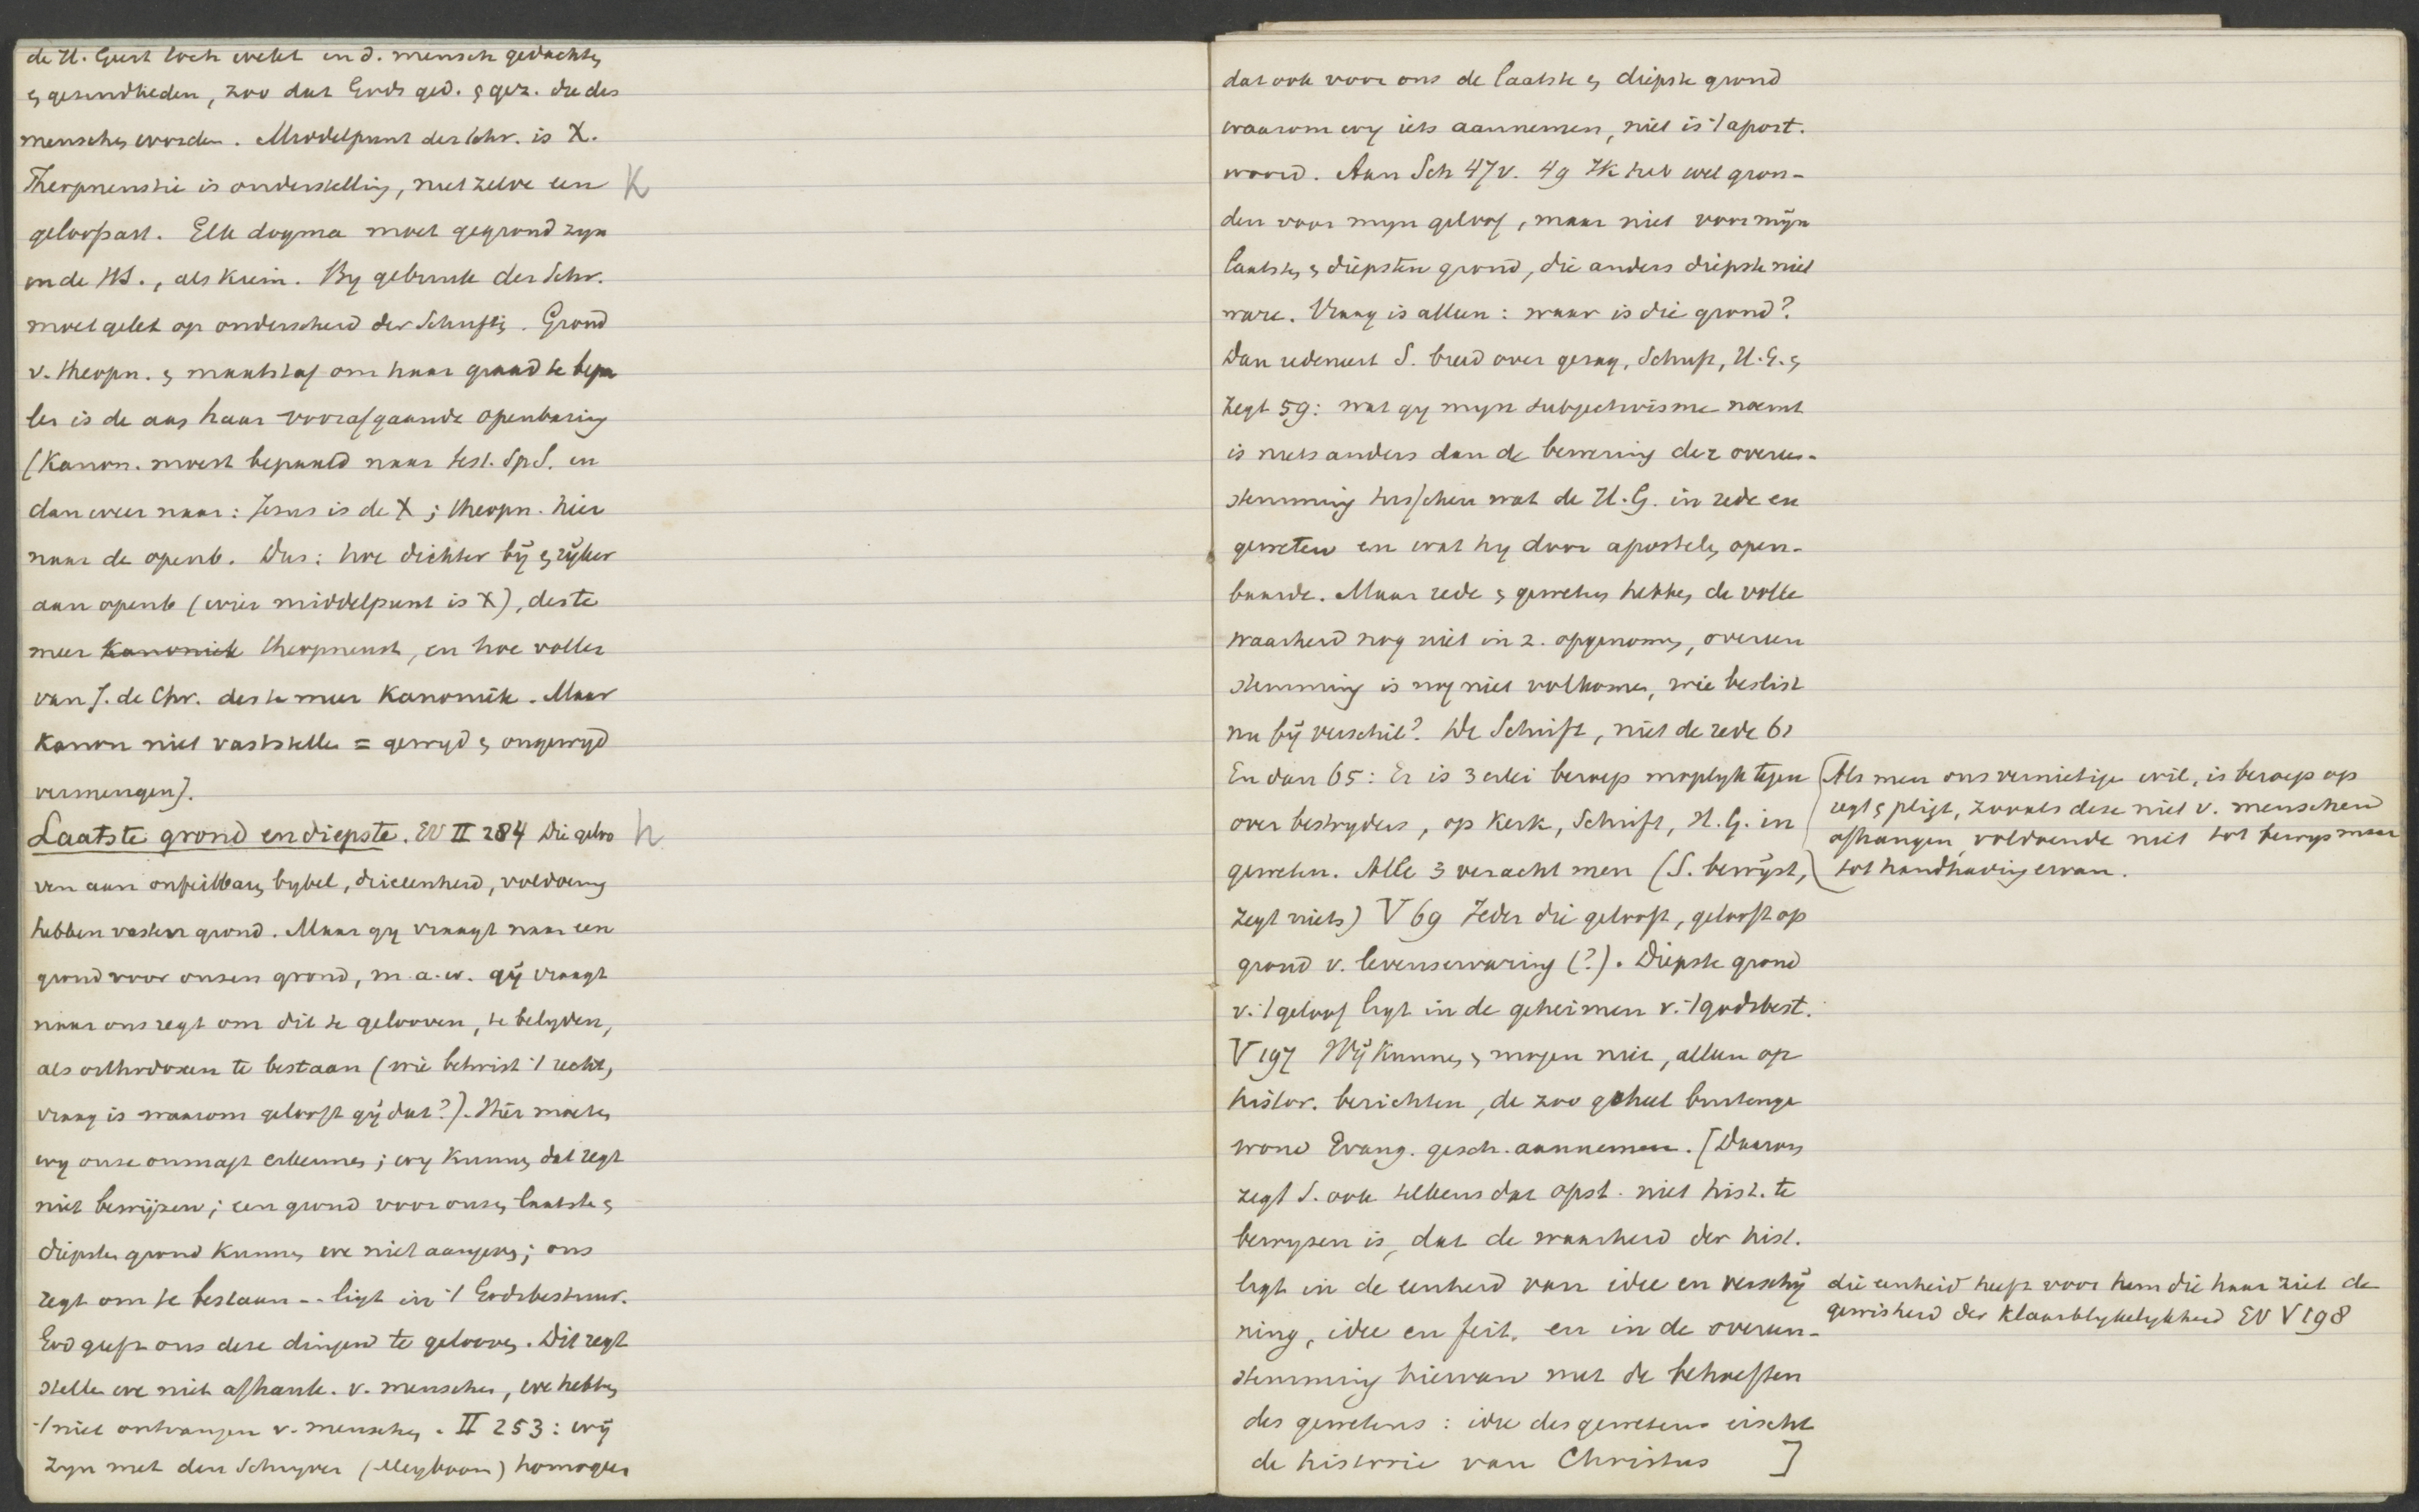 de H. Geest toch wekt in d. mensch gedachten
& gezindheden, zoo dat Gods ged. & gez. die des
menschen worden. Middelpunt der Schr. is X.
Theopneustie is onderstelling, niet zelve een K
geloofsart. Elk dogma moet gegrond zyn
in de HS., als kiem. By gebruik der Schr.
moet gelet op onderscheid der Schriften. Grond
v. theopn. & maatstaf om haar graad te bepa
len is de aan haar voorafgaande openbaring
(Kanon. moest bepaald naar test. Sp S. en
dan weer naar: Jesus is de X; theopn. hier
naar de openb. Dus: hoe dichter bÿ & rÿker
aan openb (wier middelpunt is X), des te
meer Kanoniek theopneust, en hoe voller
van J. de Chr. des te meer Kanoniek. Maar
Kanon niet vaststellen = gewyd & ongewyd
vermengen).
Laatste grond en diepste. EV II 284 Die geloo h
ven aan onfeilbaren bybel, drieëenheid, voldoening
hebben vasten grond. Maar gy vraagt naar een
grond voor onzen grond, m.a.w. gÿ vraagt
naar ons regt om dit te gelooven, te belyden,
als orthodoxen te bestaan (wie betwist 't recht,
vraag is waarom gelooft gÿ dat?). Hier moeten
wy onze onmagt erkennen; wy kunnen dat regt
niet bewÿzen; een grond voor onzen laatsten &
diepsten grond kunnen we niet aangeven; ons
regt om te bestaan -- ligt in 't Godsbestuur.
God geeft ons deze dingen te gelooven. Dit regt
stellen we niet afhank. v. menschen, we hebben
't niet ontvangen v. menschen. II 253: wÿ
zyn met den Schryver (Meyboom) homogeen
dat ook voor ons de laatste & diepste grond
waarom wy iets aannemen, niet is 't apost.
woord. Aan Sch 47 v. 49 Ik heb wel gron-
den voor myn geloof, maar niet voor mÿn
laatsten & diepsten grond, die anders diepste niet
ware. Vraag is alleen: waar is die grond?
Dan redeneert S. breed over gezag, Schrift, H.G. &
zegt 59: wat gy myn subjectivisme noemt
is niets anders dan de bewering der overeen-
stemming tusschen wat de H.G. in rede en
geweten en wat hy door apostelen open-
baarde. Maar rede & geweten hebben de volle
waarheid nog niet in z. opgenomen, overeen
stemming is nog niet volkomen, wie beslist
nu bÿ verschil? De Schrift, niet de rede 61
En dan 65: Er is 3 erlei beroep mogelyk tegen
over bestryders, op Kerk, Schrift, H.G. in
geweten. Alle 3 veracht men (S. bewÿst,
zegt niets) V 69 Ieder die gelooft, gelooft op
grond v. levenservaring (?). Diepste grond
v. 't geloof ligt in de geheimen v. 't godsbest.
V 197 Wÿ kunnen & mogen niet, alleen op
histor. berichten, de zoo geheel buitenge
wone Evang. gesch. aannemen. [Daarom
zegt S. ook telkens dat opst. niet hist. te
bewyzen is, dat de waarheid der hist.
ligt in de eenheid van idee en verschÿ
ning, idee en feit, en in de overeen-
stemming hiervan met de behoeften
des gewetens: idee des gewetens eischt
de historie van Christus ]
(Als men ons vernietigen wil, is beroep op
regt & pligt, zooals deze niet v. menschen
afhangen, voldoende niet tot bewys maar
tot handhaving ervan.
die eenheid heeft voor hem die haar ziet de
gewisheid der klaarblykelykheid EV V 198